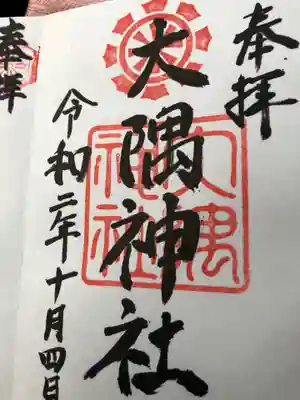 奉拝
大隅神社
大隅
神社
令和二年十月四日
奉拝